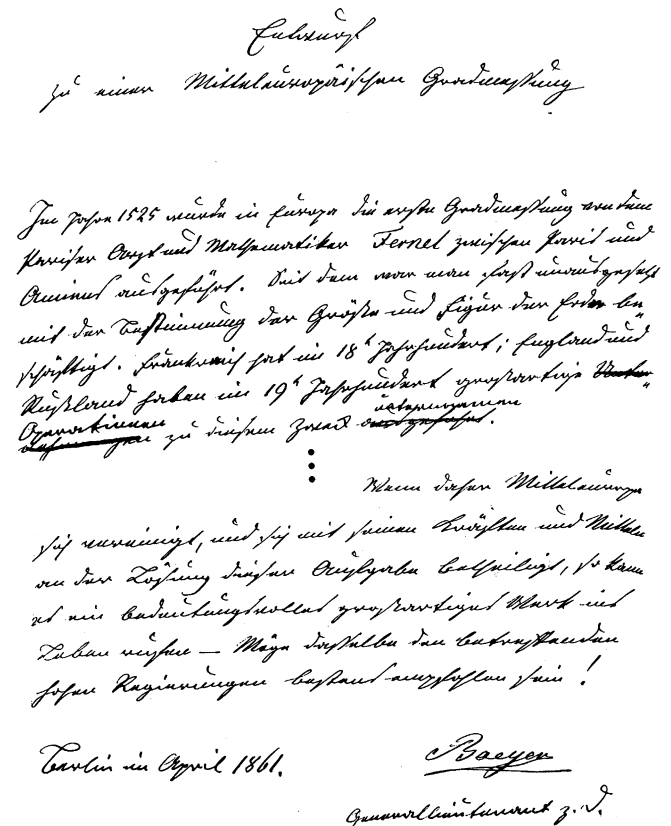 Entwurf
zu einer Mitteleuropäischen Gradmessung
Im Jahre 1525 wurde in Europa die erste Gradmessung von dem
Pariser Arzt und Mathematiker Fernel zwischen Paris und
Amiens ausgeführt. Seit dem war man fast unausgesetzt
mit der Bestimmung der Größe und Figur der Erde be=
schäftigt. Frankreich hat im 18t Jahrhundert; England und
Rußland haben im 19t Jahrhundert großartige Unter=
Operationen unternommen
nehmungen zu diesem Zweck ausgeführt.
Wenn daher Mitteleuropa
sich vereinigt, und sich mit seinen Kräften und Mitteln
an der Lösung dieser Aufgabe betheiligt, so kann
es ein bedeutungsvolles großartiges Werk ins
Leben rufen — Möge dasselbe den betreffenden
hohen Regierungen bestens empfohlen sein!
Berlin im April 1861. Baeyer
Generallieutenant z. D.